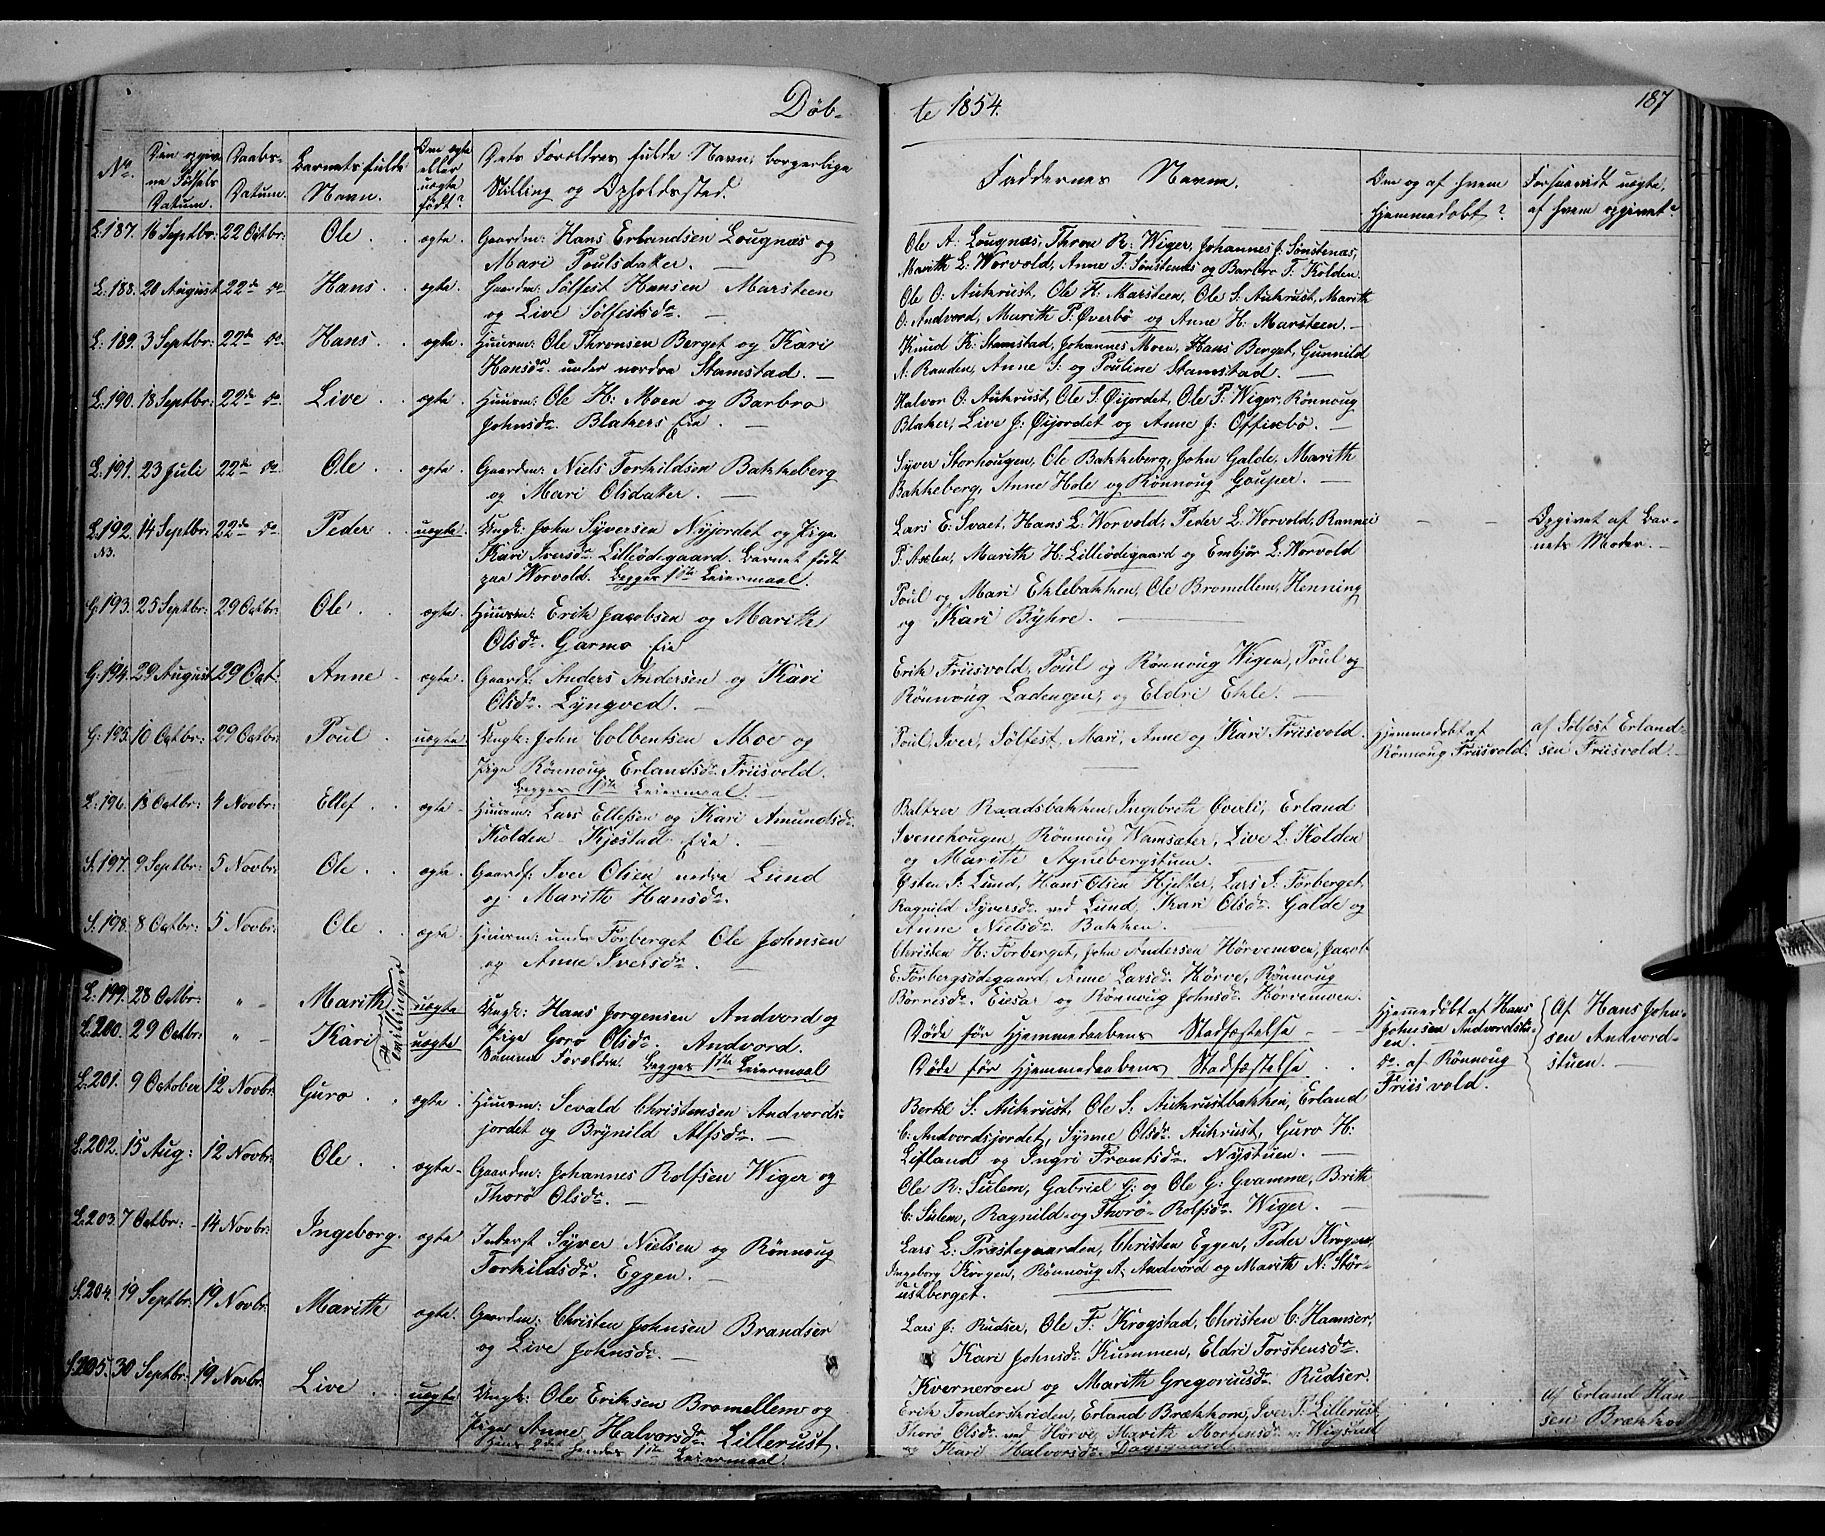 Døb-
te 1854.
187
No.
Den opgiv-
ne Fødsels
Datum.
Daabs-
Datum.
Barnets fulde
Navn.
Om ægte
eller
uægte
født?
Dets Forældres fulde Navn, borgerlige
Stilling og Opholdssted.
Faddernes Navne.
Om og af hvem
hjemmedøbt?
Forsaavidt uægte,
af hvem opgivet?
L.187. 16 Septbr: 22 Octbr: Ole . . ægte. Gaardm: Hans Erlandsen Lougnæs og
Mari Poulsdatter. —
Ole A: Lougnæs, Thron R: Wiger, Johannes J: Sønstenæs,
Marith L: Worvold, Anne T: Sønstenæs og Barbro T: Kolden.
L.188. 20 August 22de do. Hans . . ægte. Gaardm: Sølfest Hansen Marsteen
og Live Sølfestsdr. —
Ole O: Aukrust, Ole H: Marsteen, Ole S: Aukrust, Marith
O: Andvord, Marith P: Øverbø og Anne H: Marsteen. —
L.189. 3 Septbr: 22de do. Hans . . ægte. Huusm: Ole Thronsen Berget og Kari
Hansdr. under nordre Stamstad. —
Knud K: Stamstad, Johannes Moen, Hans Berget, Gunnild
A: Randen, Anne S: og Pouline Stamstad. —
L.190. 18 Septbr: 22de do. Live . . ægte. Huusm: Ole H: Moen og Barbro
Johnsdr. Blakers Eie. —
Halvor O: Aukrust, Ole S: Øijordet, Ole P: Wiger, Rønnoug
Blaker, Live J: Øijordet og Anne J: Offixbø. —
L.191. 23 Juli 22de do. Ole . . ægte. Gaardm: Niels Torkildsen Bakkeberg
og Mari Olsdatter. —
Syver Storhougen, Ole Bakkeberg, John Galde, Marith
Bakkeberg, Anne Hole og Rønnoug Gouper. —
L.192. 14 Septbr: 22de do. Peder . uægte. Ungk: John Syversen Nyjordet og Pige
N3.
Kari Iversdr. Lilleødegaard. Barnet født
paa Worvold. Begges 1ste Leiermaal.
Lars E: Svaet, Hans L: Worvold, Peder L: Worvold, Rannei
T: Aselen, Marith H: Lilleødegaard og Embjør L: Worvold
— —
Opgivet af Bar-
nets Moder. —
G.193. 25 Septbr: 29 Octbr: Ole . . ægte. Huusm: Erik Jacobsen og Marith
Olsdr. Garmo Eie
Poul og Mari Eklebakken, Ole Bromellem, Henning
og Kari Byhre. —
G.194. 29 August 29 Oct. Anne . ægte. Gaardm: Anders Andersen og Kari
Olsdr. Lyngved. —
Erik Friisvold, Poul og Rønnoug Wigen, Poul og
Rønnoug Ladengen, og Eldri Ekle. —
G.195. 10 Octbr: 29 Octbr: Poul . uægte. Ungk: John Colbentsen Moe og
Pige Rønnoug Erlandsdr. Friisvold.
Begges 1ste Leiermaal. —
Poul, Iver, Sølfest, Mari, Anne og Kari Friisvold.
Hjemmedøbt af
Rønnoug Friisvold.
af Sølfest Erland-
sen Friisvold. —
L.196. 13 Octbr: 4 Novbr: Ellef . . ægte. Huusm: Lars Ellefsen og Kari Amundsdr.
Kolden Kjøstad Eie. —
Baltzer Raadsbakken, Ingebreth Øverli, Erland
Svenehougen, Rønnoug Wamsæter, Live L: Kolden
og Marith Agnebergstuen. —
S.197. 9 Septbr: 5 Novbr: Ole . . ægte. Gaardf: Iver Olsen nedre Lund
og Marith Hansdr.
Østen I: Lund, Hans Olsen Hjelter, Lars S: Forberget,
Ragnild Syversdr. ved Lund, Kari Olsdr. Galde og
Anne Nielsdr. Bakken.
S.198. 8 Octbr: 5 Novbr: Ole . . ægte. Huusm: under Forberget Ole Johnsen
og Anne Iversdr. —
Christen H: Forberget, John Andersen Hørvemoen, Jacob
E: Forbergsødegaard, Anne Larsdr. Hørve, Rønnoug
Børresdr. Eiesar og Rønnoug Johnsdr. Hørvemoen.
L.199. 28 Octbr: " - Marith uægte Ungk: Hans Jørgensen Andvord og
L.200. 29 Octbr: " - Kari uægte Pige Gro Olsdr. Andvord.
Tvillinger
Samme Forældre. Begges 1ste Leiermaal
Døde før Hjemmedaabens Stadfæstelse — —
Døde før Hjemmedaabens Stadfæstelse . .
Hjemmedøbt af Hans
Johnsen Andvordstu-
en. —
do. af Rønnoug
Friisvold.
Af Hans John-
sen Andvord-
stuen. —
L.201. 9 October 12 Novbr: Guro . . ægte. Huusm: Sevald Christensen Andvords-
jordet og Brynild Alfsdr. —
Bertel S: Aukrust, Ole S: Aukrustbakken, Erland
C: Andvordsjordet, Synne Olsdr. Aukrust, Guro H:
Lifland og Ingri Frantsdr. Nystuen. —
L.202. 15 Aug: 12 Novbr: Ole . . ægte. Gaardm: Johannes Rolfsen Wiger og
Thorø Olsdr. —
Ole R: Sulem, Gabriel G: og Ole G: Gvamme, Brith
C: Sulem, Ragnild og Thorø Rolfsdr. Wiger. —
L.203. 7 Octbr: 14 Novbr: Ingeborg. ægte Inderst Syver Nielsen og Rønnoug
Torkildsdr. Eggen. —
Lars L: Præstegaarden, Christen Eggen, Peder Krogen,
Ingeborg Krogen, Rønnoug A: Andvord og Marith N: Stor-
ustberget.
S.204. 19 Septbr: 19 Novbr: Marith ægte. Gaardm: Christen Johnsen Brandser
og Live Johnsdr. —
Lars J: Rudser, Ole F: Krogstad, Christen C: Hamser,
Kari Johnsdr. Kummen, Eldri Torstensdr.
Kverneroen og Marith Gregoriusdr. Rudser.
S.205. 30 Septbr: 19 Novbr: Live . . uægte Ungk: Ole Eriksen Bromellem og
Pige Anne Halvorsdr. Lillerust.
Hans 2det hendes 1ste Leiermaal.
Erik Tonderskriden, Erland Brækkom, Iver P: Lillerust,
Thorø Olsdr. ved Hørve, Marith Mortensdr. Wigstad
og Kari Halvorsdr. Dagsgaard
af Erland Han-
sen Brækkom